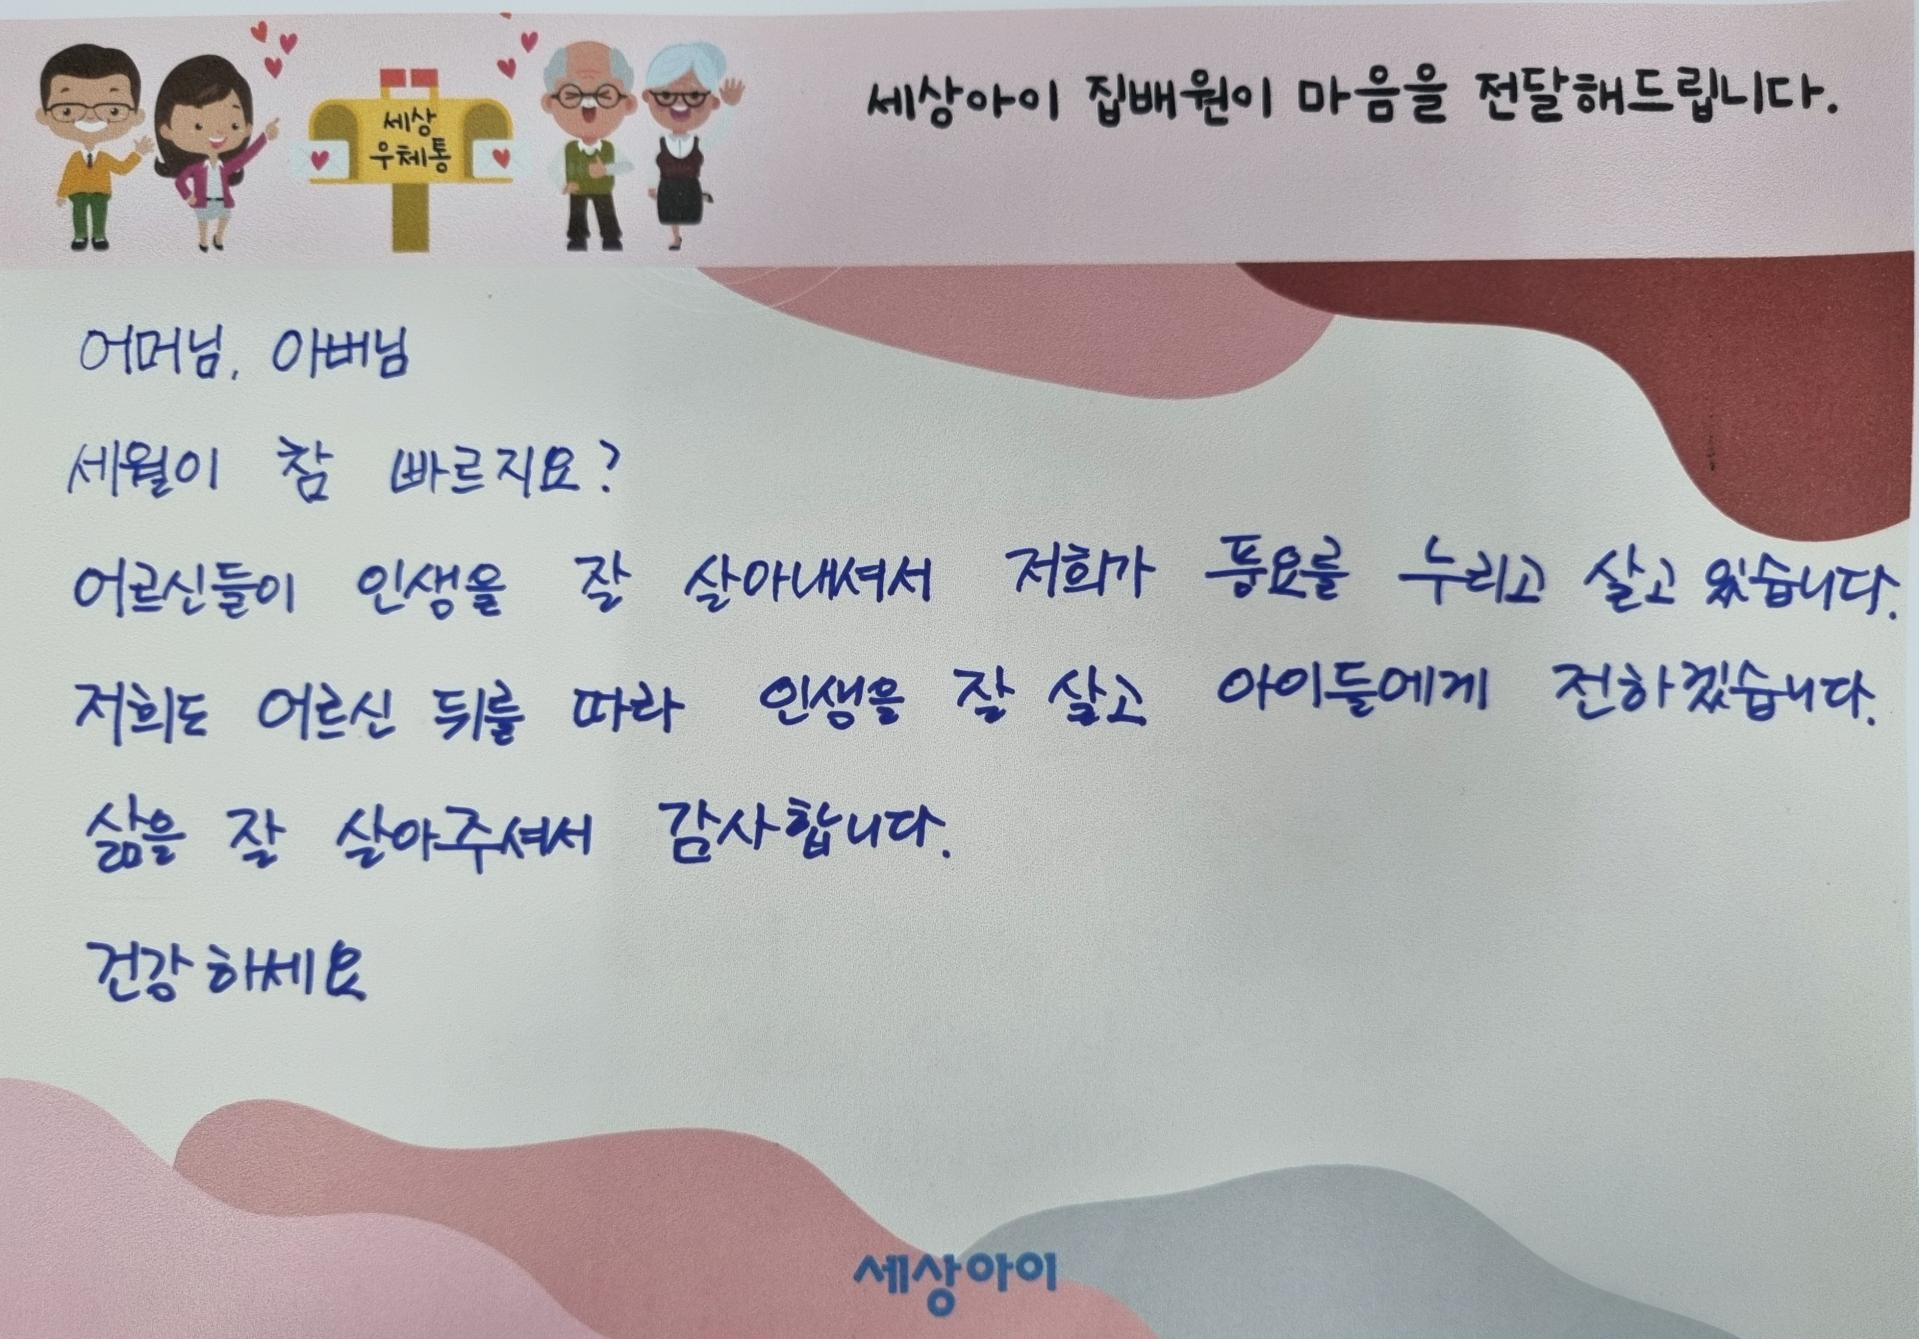 세상아이 집배원이 마음을 전달해드립니다.
세상
우체통
어머님, 아버님
세월이 참 빠르지요?
어르신들이 인생을 잘 살아내셔서 저희가 풍요를 누리고 살고 있습니다.
저희도 어르신 뒤를 따라 인생을 잘 살고 아이들에게 전하겠습니다.
삶을 잘 살아주셔서 감사합니다.
건강하세요
세상아이